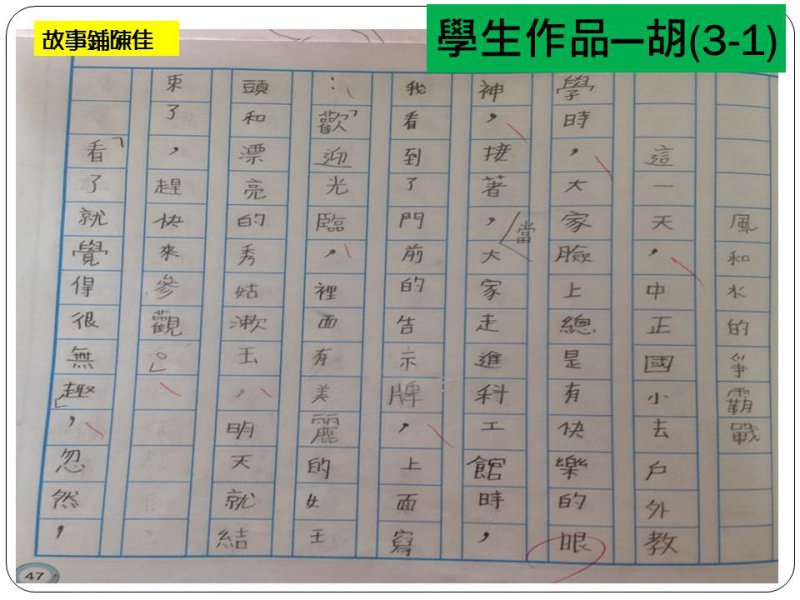 故事鋪陳佳
學生作品—胡(3-1)
風和水的爭霸戰
這一天，中正國小去戶外教
學時，大家臉上總是有快樂的眼
神，接著，當大家走進科工館時，
我看到了門前的告示牌，上面寫
：「歡迎光臨，裡面有美麗的女王
頭和漂亮的秀姑漱玉，明天就結
束了，趕快來參觀。」
「看了就覺得很無趣」，忽然，
47